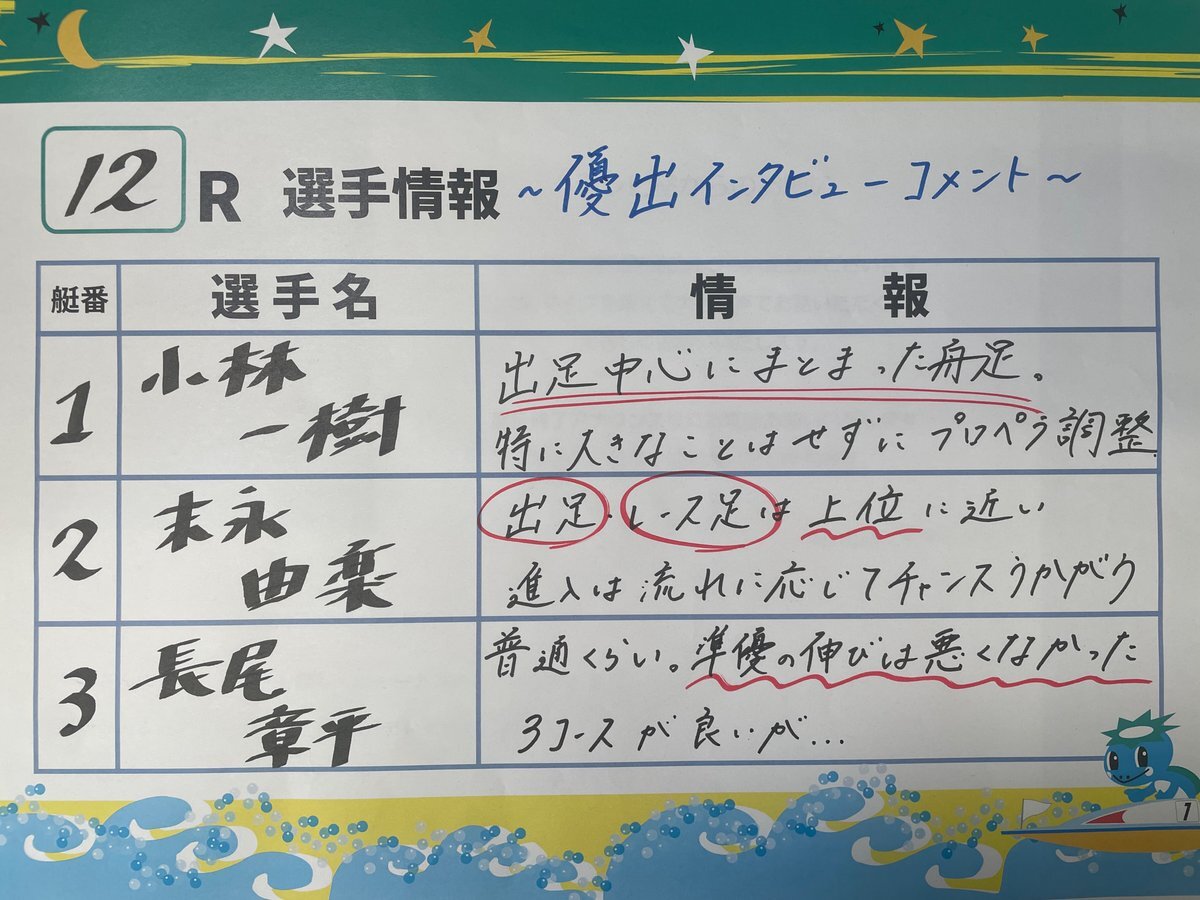 12 R 選手情報 ~優出インタビューコメント~
艇番 選手名 情報
1 小林 一樹 出足中心にまとまった舟足。
特に大きなことはせずにプロペラ調整
2 末永 由楽 出足・レース足は上位に近い
進入は流れに応じてチャンスうかがう
3 長尾 章平 普通くらい。準優の伸びは悪くなかった
3コースが良いが…
7